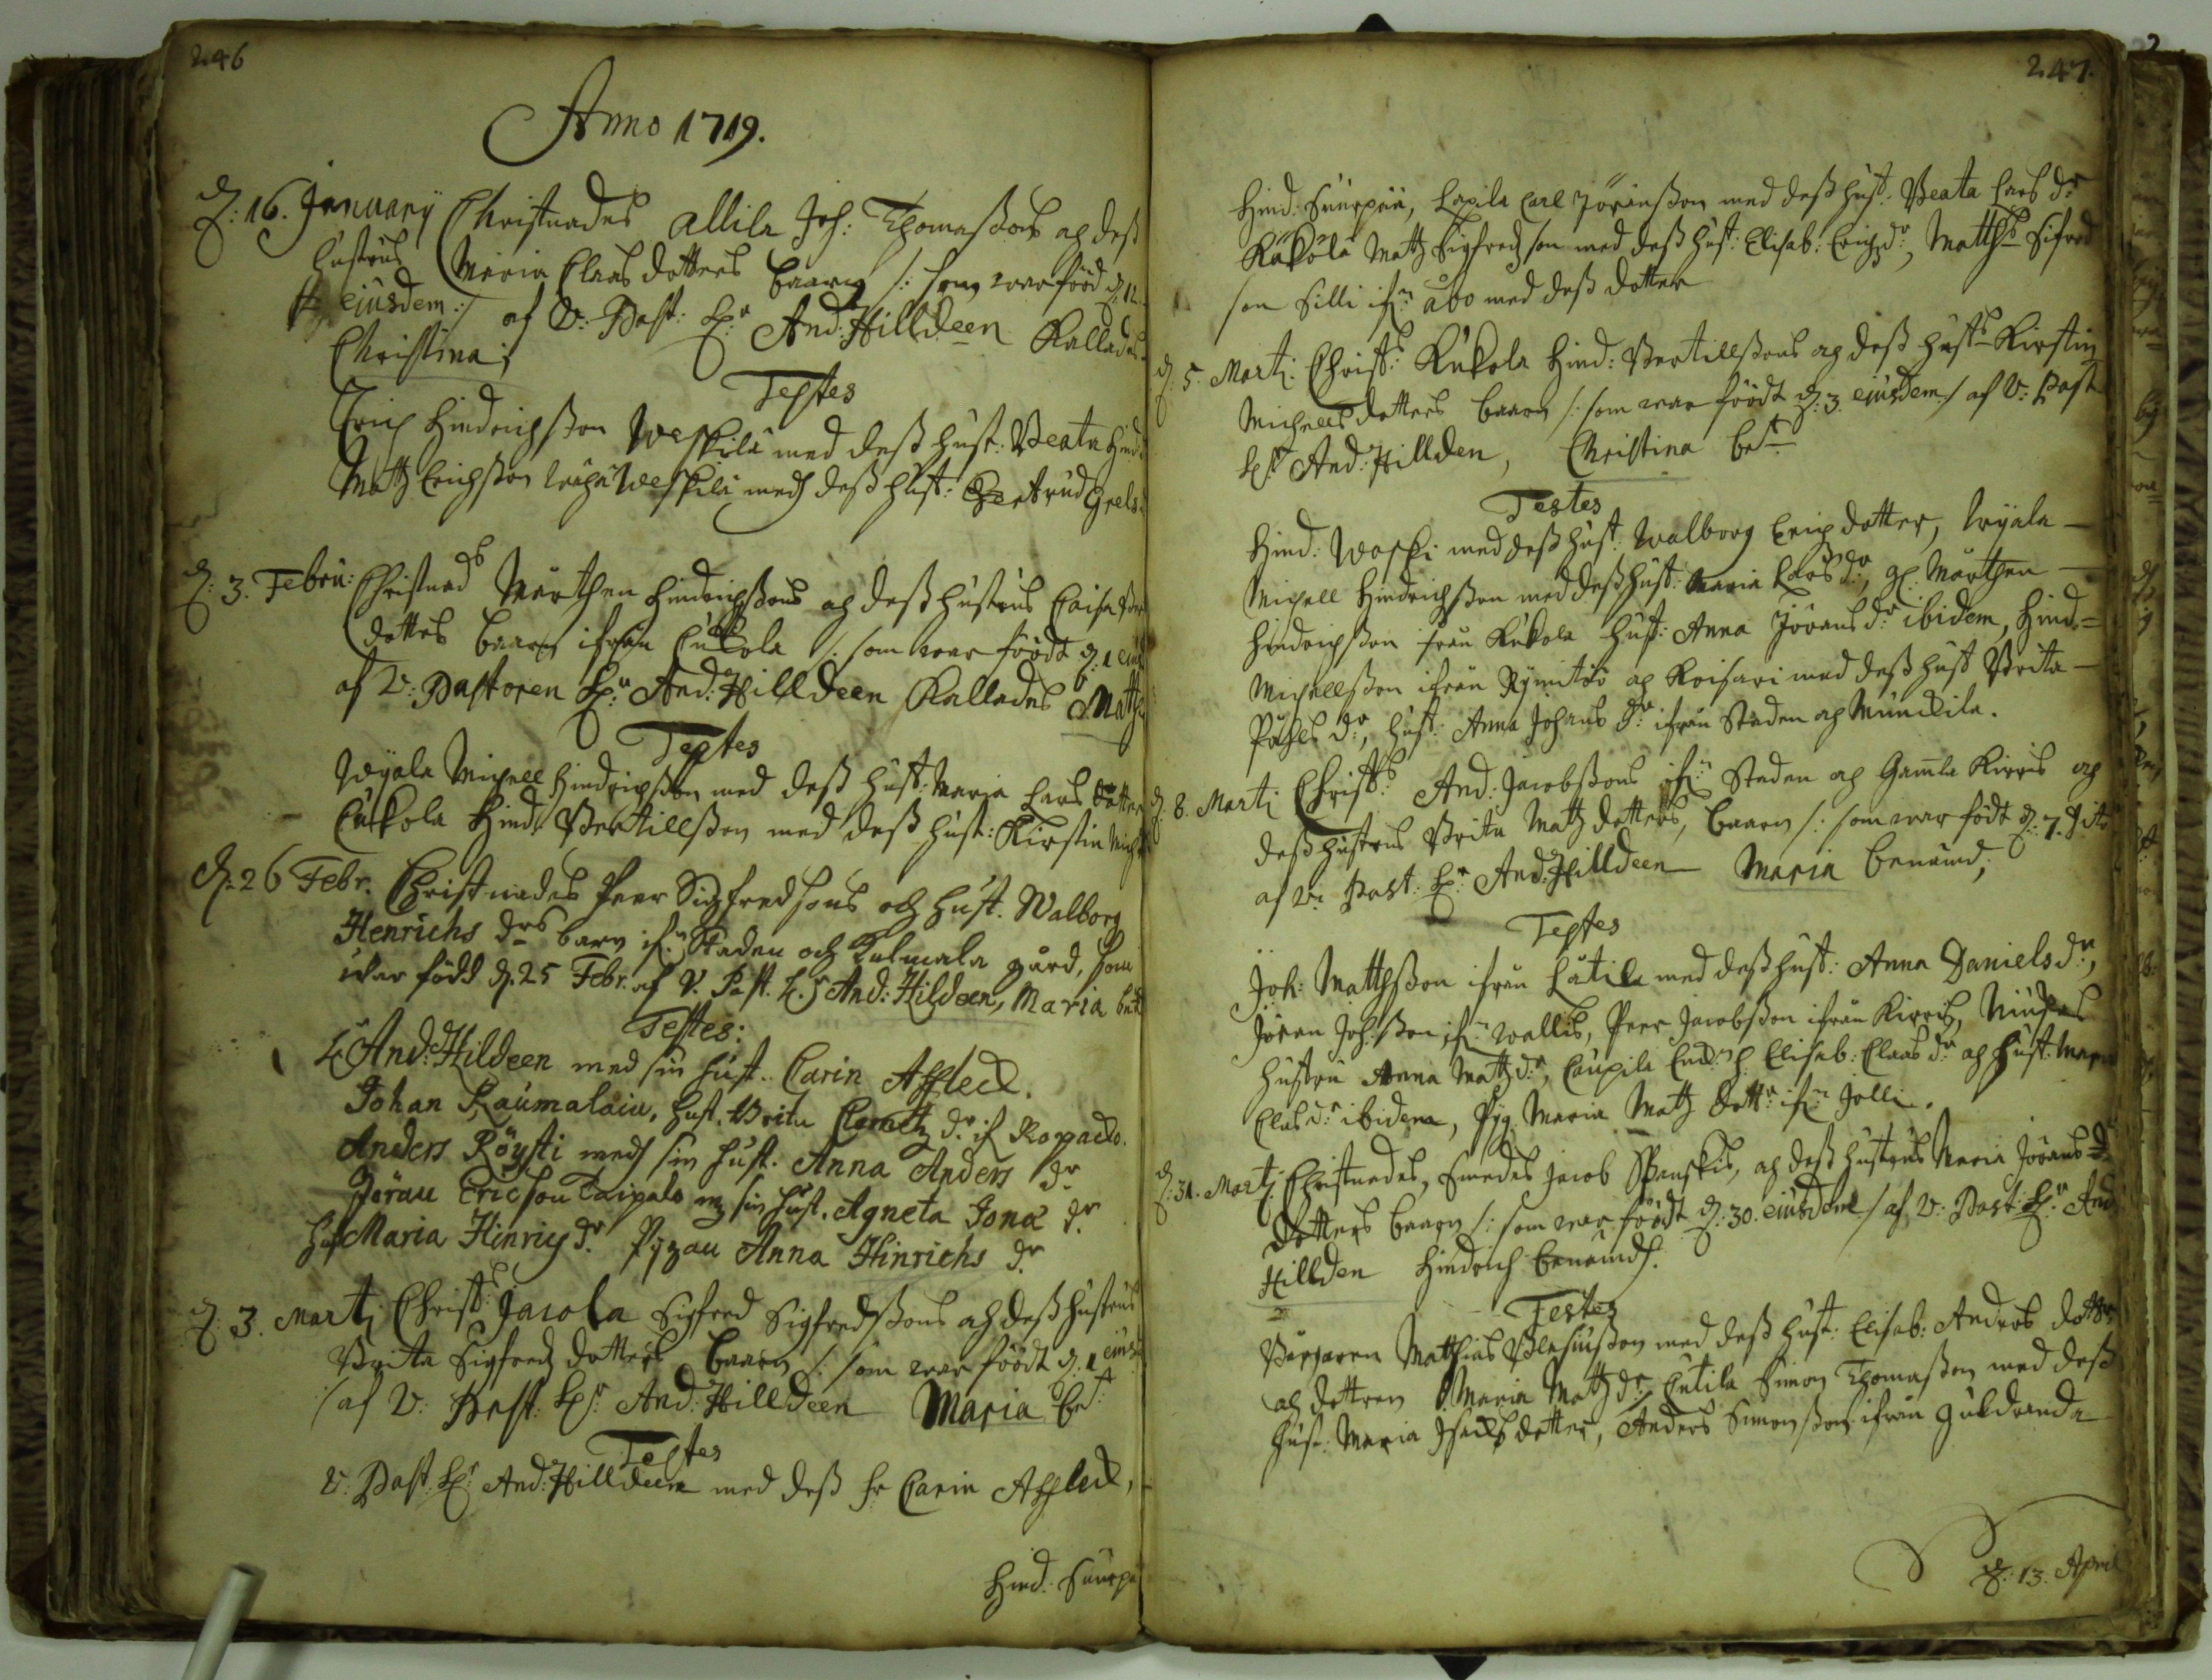 246
Anno 1719.
d: 16. January Christnades Allila Joh: Thomaßons och deß
hustrus Maria Claes dotters baarn /: som war föd d. 12
ejusdem :/ af V: Past: H:r And: Hilldeen Kallades
Christina;
Testes
Erich Hindrichßon Weskila med deß hust: Beata Hind:
Matz Erichßon Weskila med deß hust: Gertrud Grels
d: 3. Febru: Christnad:s Mårthen Hindrichßons och deß hustrus Caisa
dotters baarn ifrån Cukola /: som war föödt d. 1 ejus
af V: Pastoren H:r And: Hilldeen Kallades Matths
Testes
Wyala Michell Hindrichßon med deß hust: Maria Lars dotter
Cukola Hind: Bertillßon med deß hust: Kirstin Mich
d. 26 Febr. Christnades Peer Sigfredsons och hust. Walborg
Henrichs d:rs barn if:n Staden och Kulmala gård, som
war född d. 25 Febr. af V. Past. H.r And: Hildeen, Maria be:d
Testes:
H And: Hildeen med sin hust. Carin Affleck.
Johan Raumalain, hust. Brita Clemetz d:r if
Anders Röysti med sin hust. Anna Anders d:r
Jöran Ericson Taipale m sin hust. Agneta Jona d:r
hust Maria Hinrics d:r Pigan Anna Hinrichs d:r
d: 3. Marti Christ:s Jacola Sigfred Sigfredßons och deß hustrus
Brita Sigfredz dotters baarn /: som war föödt d. 1 ejusd
/ af V: Past: H:r And: Hilldeen Maria be:d
Testes
V: Past: H:r And: Hilldeen med deß fr Carin Affleck,
Hind. Suurpä
247.
Hind: Suurpää, Lapila Carl Jöranßon med deß hust: Beata Lars d:r
Kukola Matz Sigfredz son med deß hust: Elisab: Erichz d:r, Matths Sifred
son Silli if:n åbo med deß dotter
d. 5. Marti Christ:s Kukola Hind: Bertillßons och deß hust:s Kirstin
Michells dotters baarn /: som war föödt d: 3. ejusdem :/ af V: Past
H:r And: Hillden, Christina be:d
Testes
Hind: Waski med deß hust: Walborg Erichz dotter, Wyala
Michell Hindrichßon med deß hust: Maria Lars d:r, och Mårthen
Hindrichßon från Kukola hust: Anna Jörans d:r ibidem, Hind:
Michellßon ifrån Rymitö och Koisari med deß hust Brita
Påhls d:r, hust: Anna Johans d:r ifrån Staden och Munckila.
d: 8. Marti Christ:s And: Jacobßons if:n Staden och Gamla Kirris och
deß hustrus Brita Matz dotters, baarn /: som war födt d: 7. dito
af V: Past: H:r And: Hilldeen Maria benämd;
Testes
Joh: Matthßon ifrån Lätila med deß hust: Anna Daniels d:r,
Jöran Joh:ßon if:n Wallis, Peer Jacobßon ifrån Kirris,
hustru Anna Matz d:r, Caupila H. Elisab: Claes d:r och hust: Maria
Claes d:r ibidem, Pig: Maria Matz dott:r if:n Jolli.
d: 31. Marti Christnades, Smedes Jacob Spenskis, och deß hustrus Maria Jörans
dotters baarn /: som war födt d: 30. ejusdem :/ af V: Past: H:r And
Hillden Hindrich benämd.
Testes
Borgaren Mathias Blasiußon med deß hust: Elisab: Anders dotter
och dottren Maria Matz d:r Cutila Simon Thomaßon med deß
hust: Maria Isachs dotter, Anders Simonßon ifrån Guldranda
d: 13. April